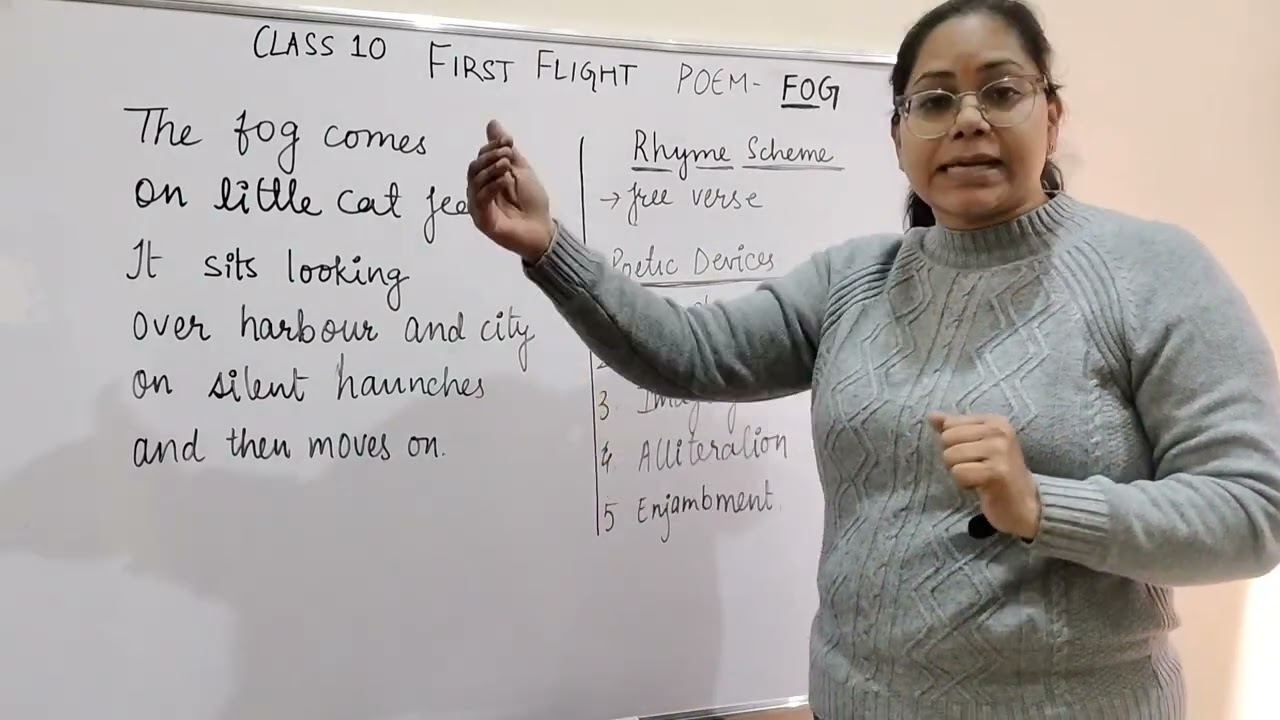 CLASS 10 FIRST FLIGHT POEM- FOG
The fog comes
on little cat
It sits looking
over harbour and city
on silent haunches
and then moves on.
Rhyme Scheme
→ free verse
Poetic Devices
3.
4 Alliteration
5 Enjambment.